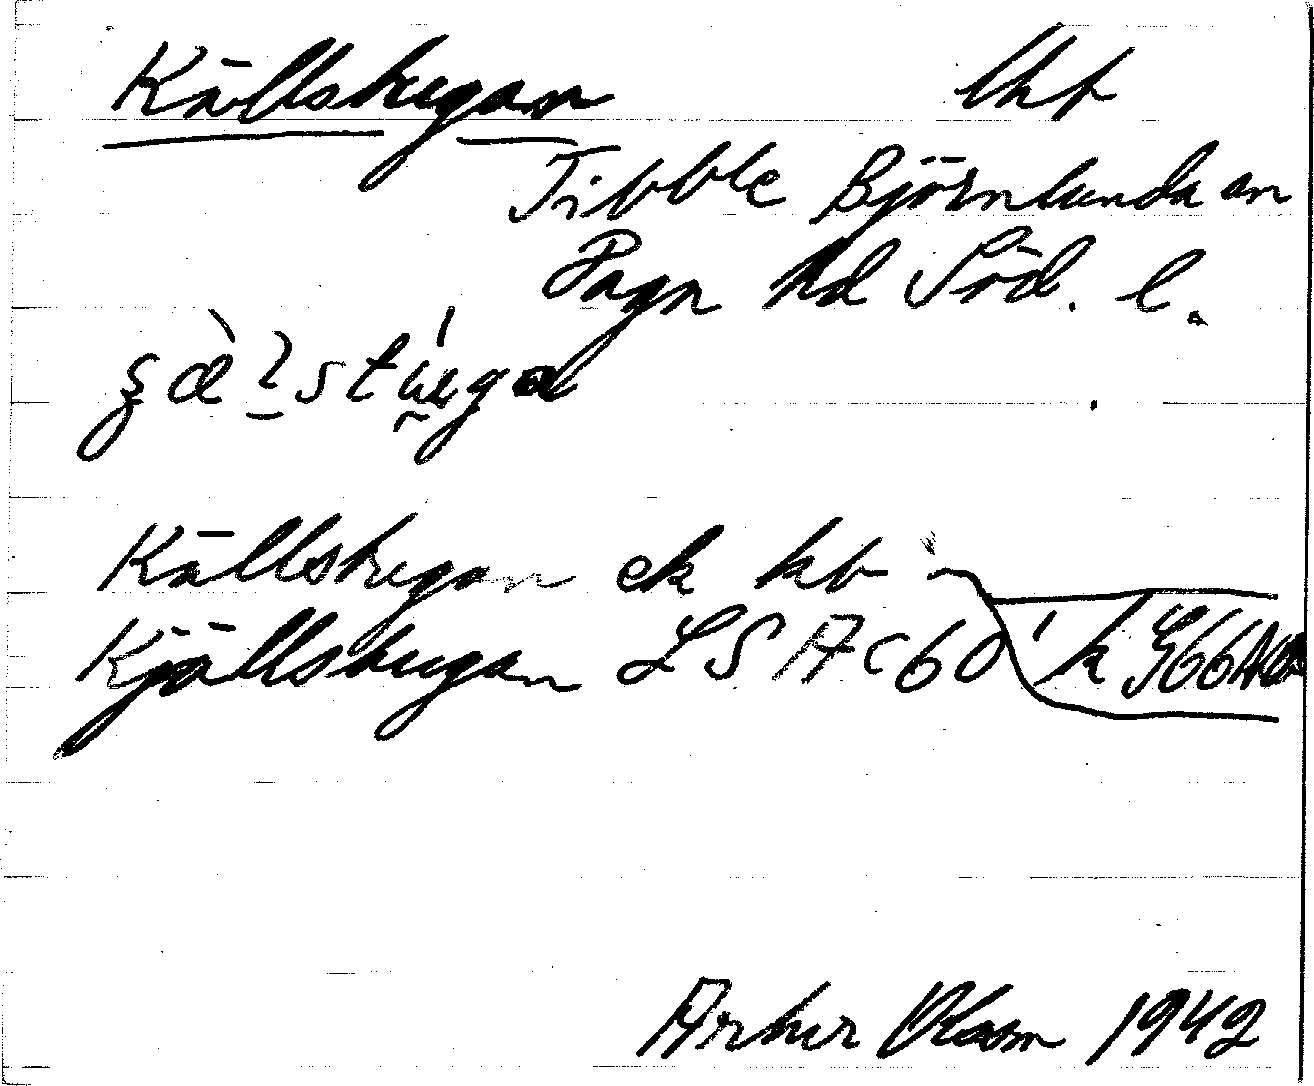 Källstugan lht
Tibble Björnlunda sn
Daga hd Söd. l.
Källstugan ek kb
Kjällstugan LSA C60' k
Arthur Olsson 1942